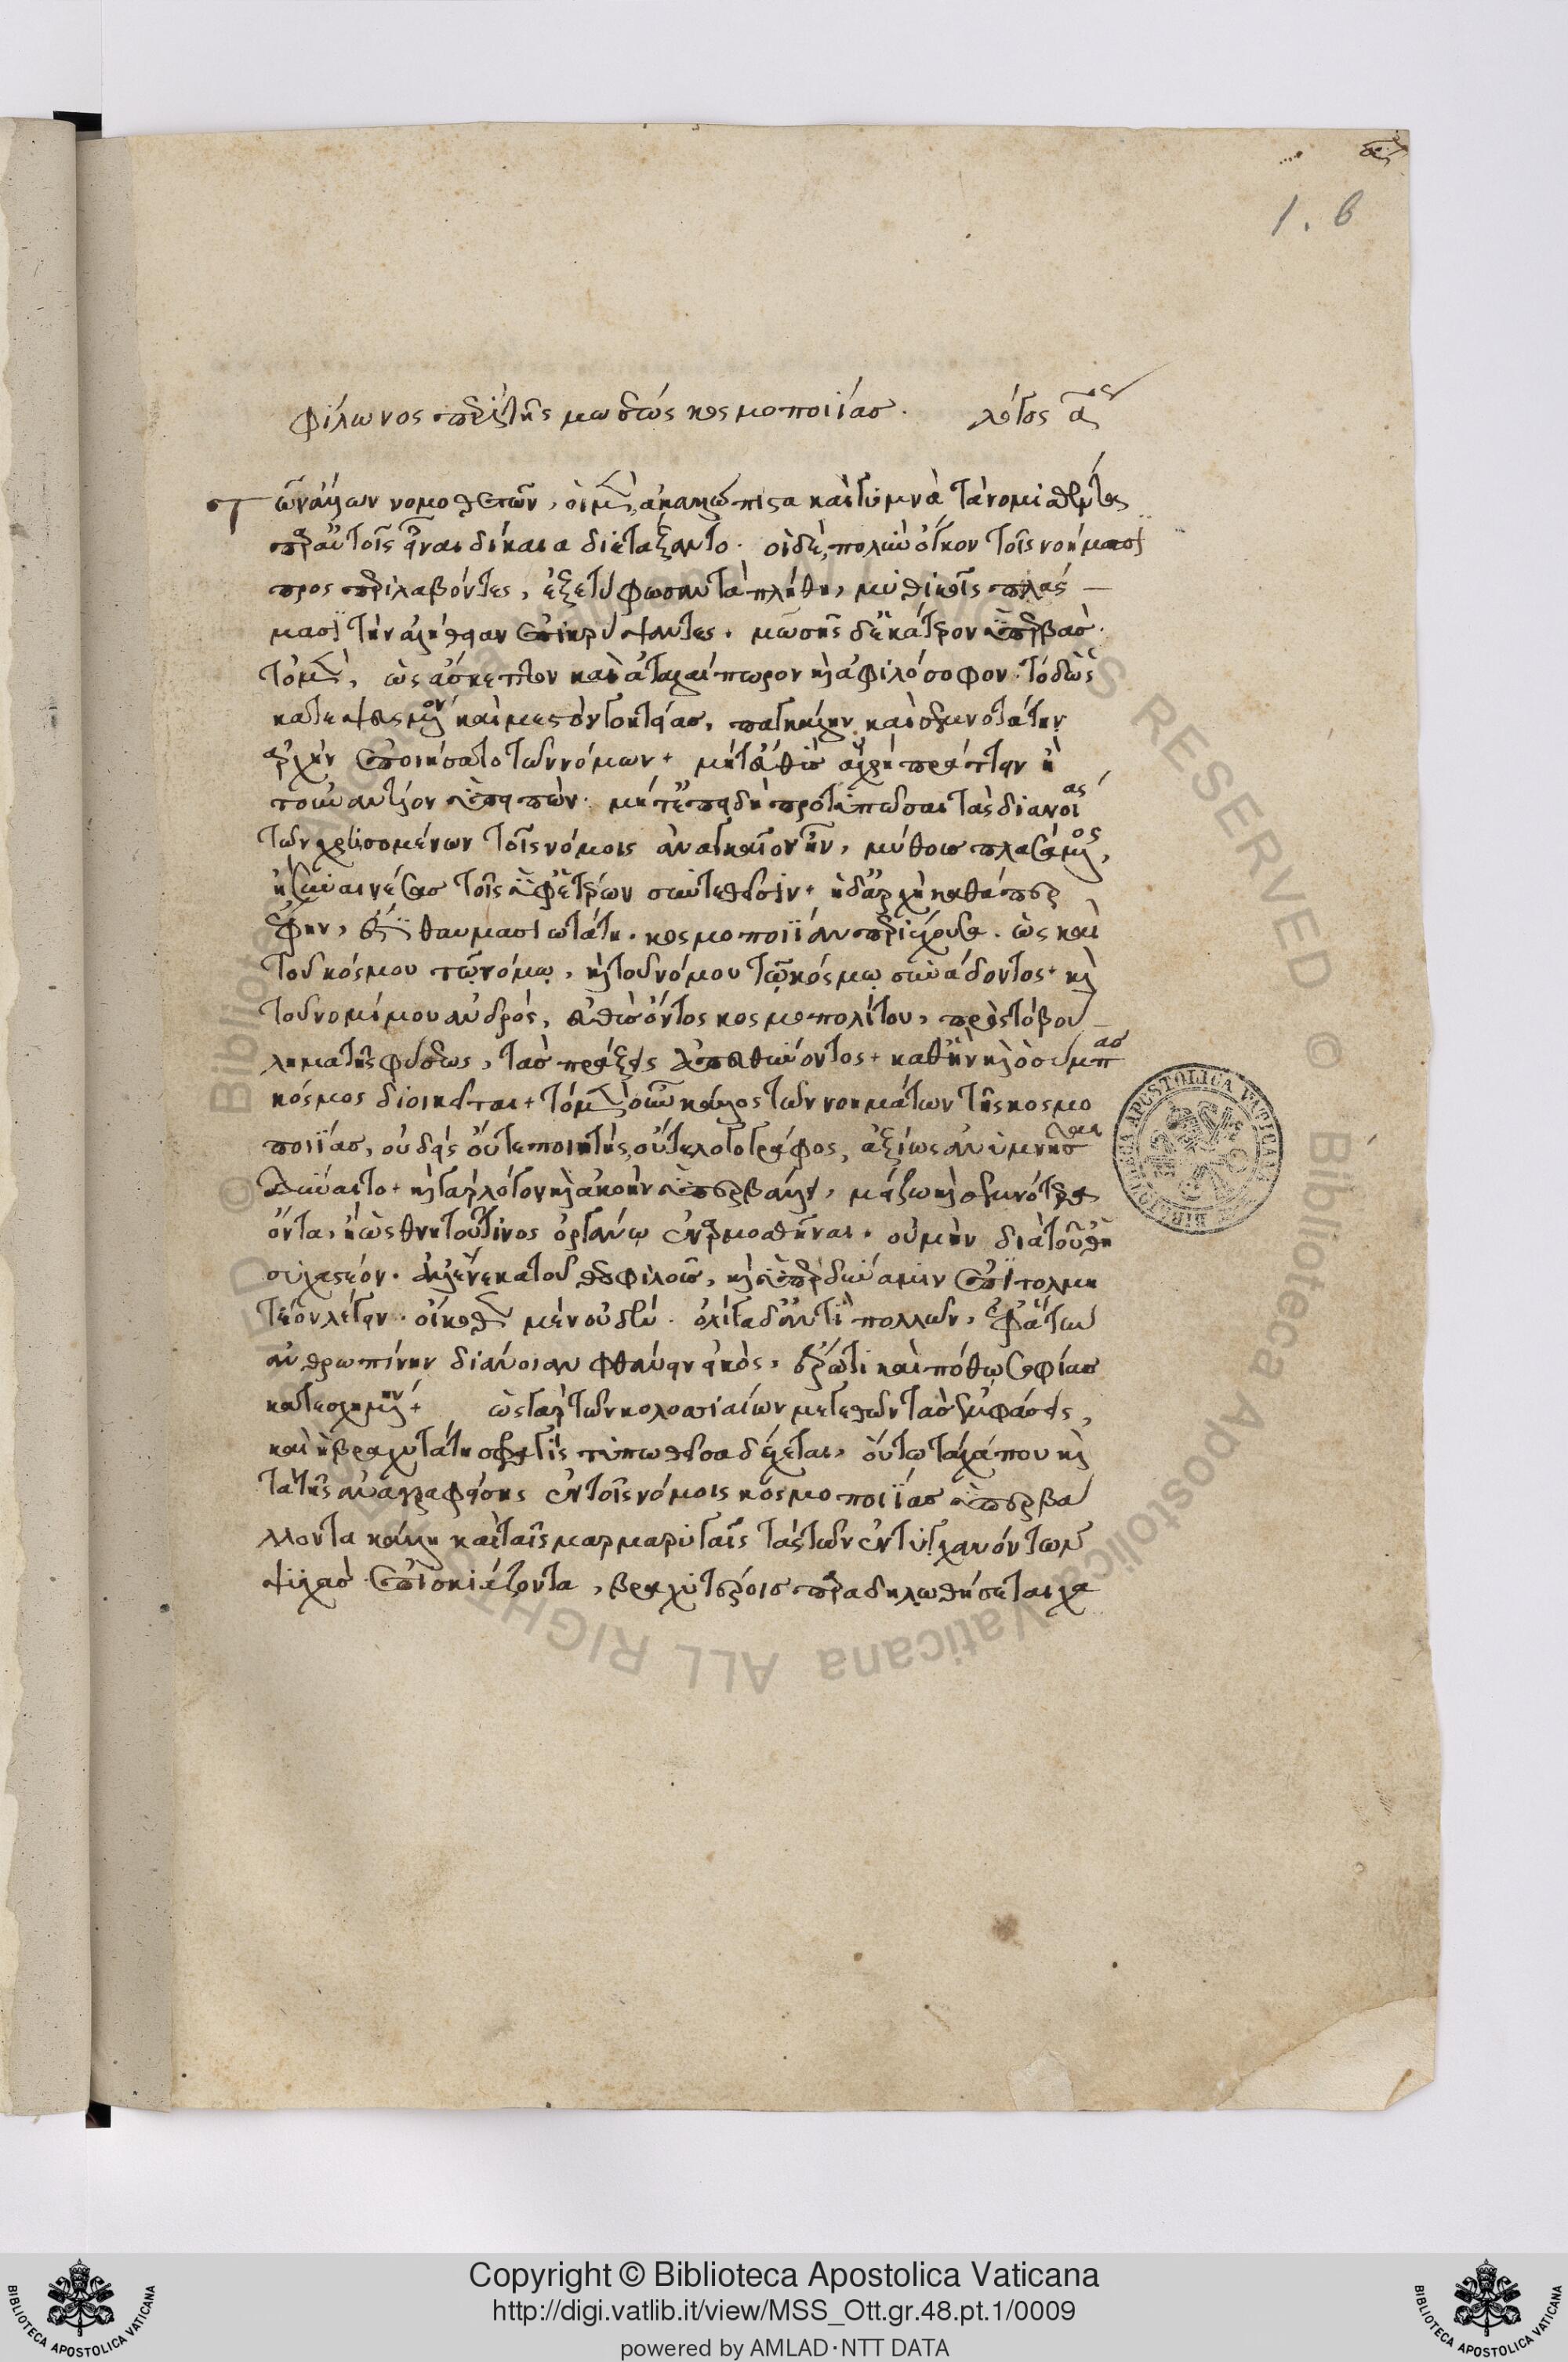 1. 6
Φίλωνος περὶ τῆς μωσέως κοσμοποιΐασ. λόγος α
Τῶν ἄλλων νομοθετῶν, οἱ μὲν, ἀκαλλώπιστα καὶ γυμνὰ τὰ νομισθέντα
παρ' αὐτοῖς εἶναι δίκαια διετάξαντο. οἱ δὲ, πολὺν ὄγκον τοῖς νοήμασι
προσπεριλαβόντες, ἐξετύφωσαν τὰ πλήθη, μυθικοῖς πλάσ
μασι τὴν ἀλήθειαν ἐπικρύψαντες. μωσῆς δ' ἑκάτερον ὑπερβάσ.
τὸ μὲν, ὡς ἄσκεπτον καὶ ἀταλαίπωρον καὶ ἀφιλόσοφον. τὸ δ' ὡς
κατεψευσμένον καὶ μεστὸν γοητείασ, παγκάλην καὶ σεμνοτάτην
ἀρχὴν ἐποιήσατο τῶν νόμων + μήτ' εὐθὺσ ἃ χρὴ πράττειν ἢ
τοὐναντίον ὑπειπὼν. μήτ' ἐπειδὴ προτυπῶσαι τὰς διανοίας
τῶν χρησομένων τοῖς νόμοις ἀναγκαῖον ἦν, μύθουσ πλασάμενος,
ἢ συναινέσασ τοῖς ὑφ' ἑτέρων συντεθεῖσιν + ἡ δ' ἀρχὴ καθάπερ
ἔφην, ἐστὶ θαυμασιωτάτη. κοσμοποιΐαν περιέχουσα. ὡς καὶ
τοῦ κόσμου τῷ νόμῳ, καὶ τοῦ νόμου τῷ κόσμῳ συνάδοντος + καὶ
τοῦ νομίμου ἀνδρός, εὐθὺσ ὄντος κοσμοπολίτου, πρὸς τὸ βού
λημα τῆς φύσεως, τὰσ πράξεις ἀπευθύνοντος + καθ' ἣν καὶ ὁ σύμπασ
κόσμος διοικεῖται + τὸ μὲν οὖν κάλλος τῶν νοημάτων τῆς κοσμο
ποιΐασ, οὐδεὶς οὔτε ποιητής, οὔτε λογογράφος, ἀξίως ἂν ὑμνῆσαι
δύναιτο + καὶ γὰρ λόγον καὶ ἀκοὴν ὑπερβάλλει, μείζω καὶ σεμνότερα
ὄντα, ἢ ὡς θνητοῦ τινος ὀργάνῳ ἐναρμοσθῆναι. οὐ μὴν διὰ τοῦθ' ἡ
συχαστέον. ἀλλ' ἕνεκα τοῦ θεοφιλοῦσ, καὶ ὑπὲρ δύναμιν ἐπιτολμη
τέον λέγειν. οἴκοθεν μὲν οὐδέν. ὀλίγα δ' ἀντὶ πολλῶν, ἐφ' ἃ τὴν
ἀνθρωπίνην διάνοιαν φθάνειν εἰκὸς, ἔρωτι καὶ πόθῳ σοφίασ
κατεσχημένην + ὡς γὰρ τῶν κολοσσιαίων μεγεθῶν τὰσ ἐμφάσεις,
καὶ ἡ βραχυτάτη σφραγὶς τυπωθεῖσα δέχεται, οὕτω τάχα που καὶ
τὰ τῆς ἀναγραφείσης ἐν τοῖς νόμοις κοσμοποιΐασ ὑπερβάλ
λοντα κάλλη καὶ ταῖς μαρμαρυγαῖς τὰς τῶν ἐντυγχανόντων
ψυχὰσ ἐπισκιάζοντα, βραχυτέροισ παραδηλωθήσεται χα
BIBLIOTECA APOSTOLICA VATICANA
© Biblioteca Apostolica Vaticana ALL RIGHTS RESERVED
Copyright © Biblioteca Apostolica Vaticana
http://digi.vatlib.it/view/MSS_Ott.gr.48.pt.1/0009
powered by AMLAD·NTT DATA
BIBLIOTECA APOSTOLICA VATICANA
BIBLIOTECA APOSTOLICA VATICANA